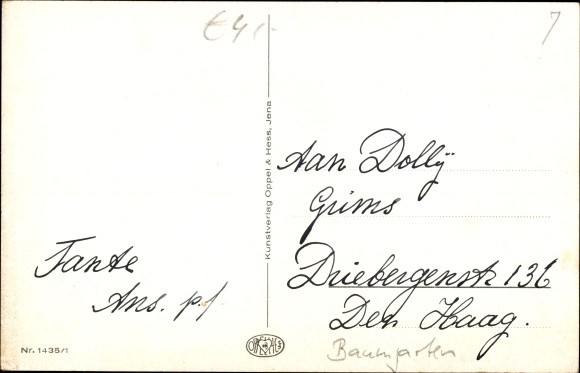 €4,-
7
Kunstverlag Oppel & Hess, Jena
Aan Dolly
Grims
Driebergenstr 136
Den Haag.
Tante
Ans. p.f
Nr. 1435/1
Baumgarten